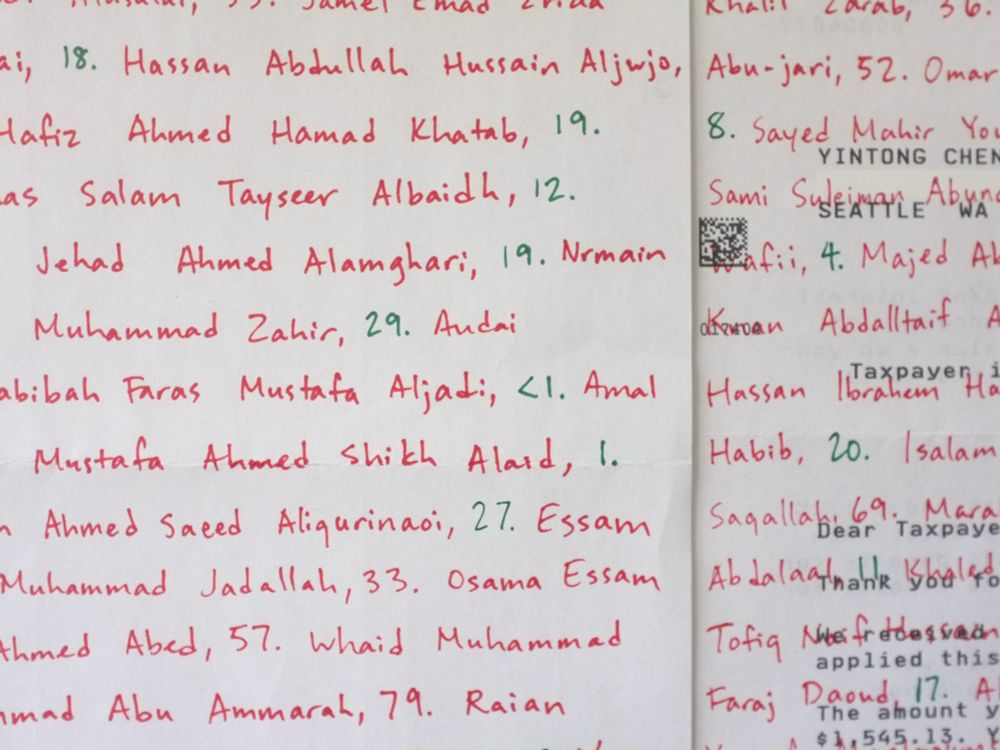 18. Hassan Abdullah Hussain Aljwjo,
Hafiz Ahmed Hamad Khatab, 19.
Salam Tayseer Albaidh, 12.
Jehad Ahmed Alamghari, 19. Nrmain
Muhammad Zahir, 29. Audai
abibah Faras Mustafa Aljadi, <1. Amal
Mustafa Ahmed Shikh Alaid, 1.
Ahmed Saeed Aliqurinaoi, 27. Essam
Muhammad Jadallah, 33. Osama Essam
Ahmed Abed, 57. Whaid Muhammad
Abu Ammarah, 79. Raian
Khalil Zarab, 36.
Abu-jari, 52. Omar
8. Sayed Mahir You
YINTONG CHEN
Sami Suleiman Abun
SEATTLE WA
afii, 4. Majed Ab
Abdalltaif A
Taxpayer i
Hassan Ibrahem Ha
Habib, 20. Isalam
Saqallah, 69. Mara
Dear Taxpaye
Abdalaal, 11. Khaled
Thank you fo
Tofiq Naif Hassan
We received
applied this
Faraj Daoud, 17. Al
The amount y
$1,545.13. Y